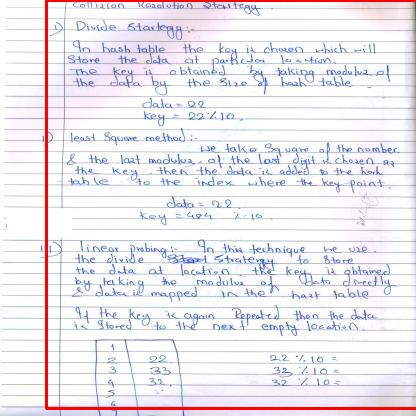 Collision Resolution Startegy
i) Divide Startegy:-
In hash table the key is chosen which will
store the data at particular location.
The key is obtained by taking modulus of
the data by the size of hash table
data = 22
key = 22 % 10.
least Square method:-
we take Square of the number
& the last modulus of the last digit is chosen as
the key. then the data is added to the hash
table to the index where the key point.
data = 22.
key = 484 % 10
iii) linear probing:- In this technique we use
the divide Stratergy to store
the data at location. the key is obtained
by taking the modulus of data directly
& data is mapped in the hast table
If the key is again Repeated then the data
is stored to the next empty location.
1
2 22 22 % 10 =
3 33 33 % 10 =
4 32. 32 % 10 =
5
6